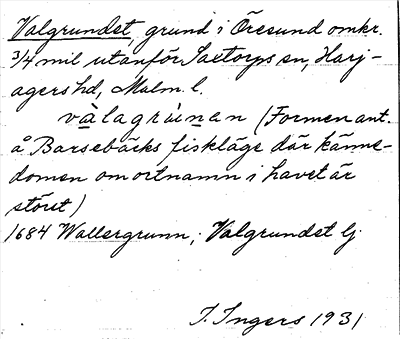 Valgrundet, grund i Öresund omkr.
3/4 mil utanför Saxtorps sn, Harj-
agers hd, Malm. l.
vàlagrúnan (Formen ant.
å Barsebäcks fiskläge där känne-
domen om ortnamn i havet är
störst)
1684 Wallergrunn; Valgrundet Gj
I. Ingers 1931